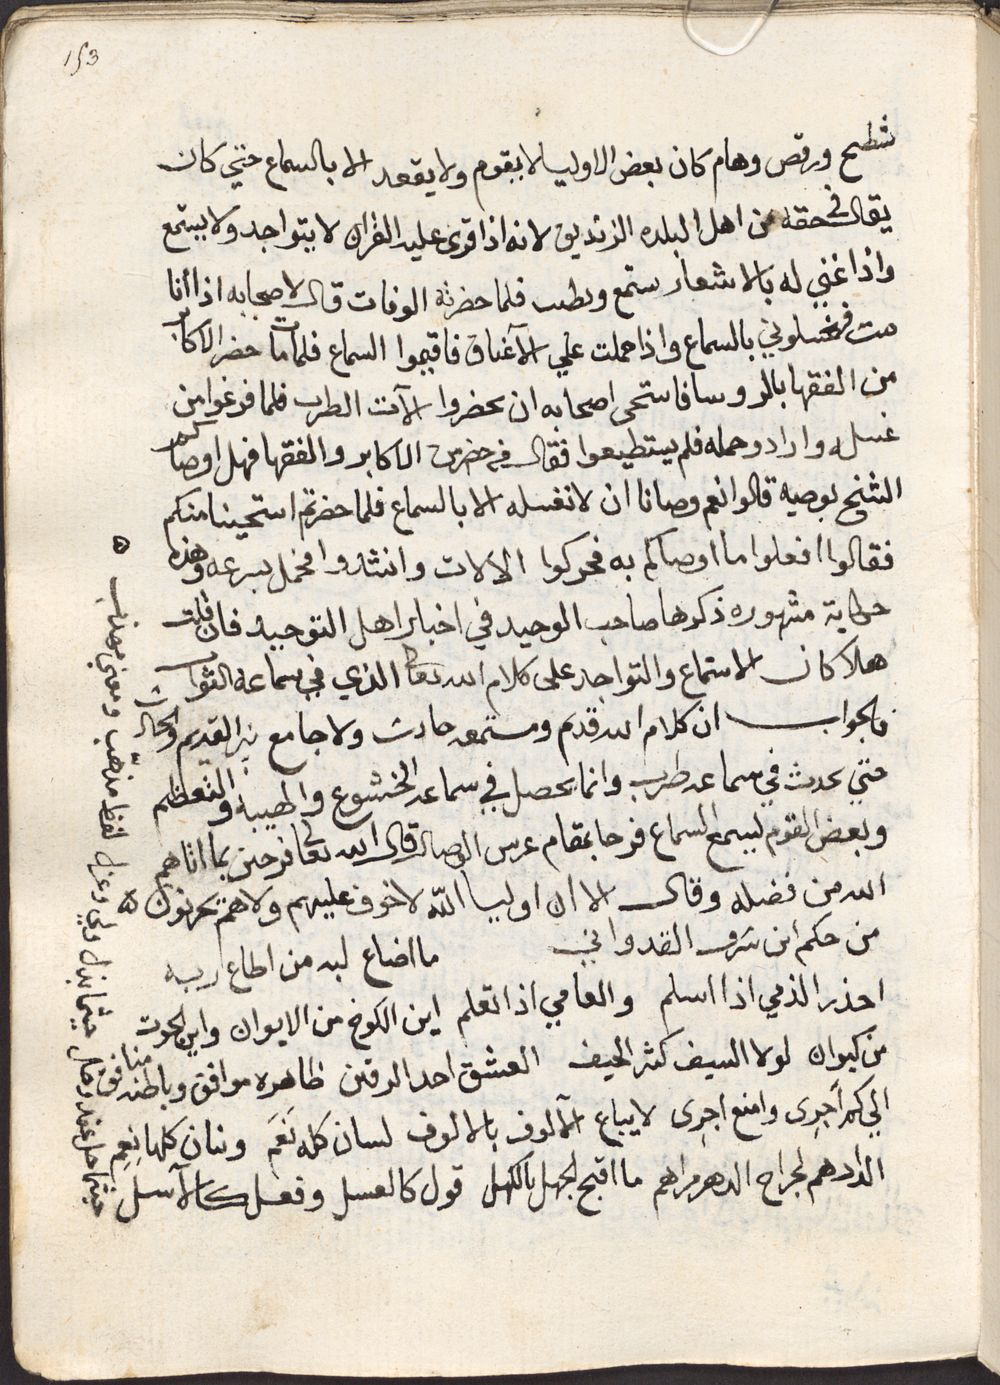 153
شطح ورقص وهام كان بعض الاوليا لا يقوم ولا يقعد الا بالسماع حتي كان
يقال في حقه من اهل البلده الزنديق لانه اذا قرى عليه القران لا يتواجد ولا يستمع
واذا غني له بالاشعار ستمع وطب فلما حضرته الوفات قال لاصحابه اذا أنا
مت فغسلوني بالسماع واذا حملت علي الآعناق فاقيموا السماع فلما مات حضر الاكابر
من الفقها بالروسا فاستحى اصحابه ان يحضروا الآت الطرب فلما فرغوا من
غسله وارادو حمله فلم يستطيعوا فقال في حضرت الاكابر والفقها فهل اوصاكم
الشيخ بوصيه قالوا نعم وصانا ان لا نغسله الا بالسماع فلما حضرتم استحينا منكم
فقالوا افعلوا ما اوصاكم به فحركوا الالات وانشدوا فحمل بسرعه وهذه
حكاية مشهوره ذكرها صاحب الوحيد في اخبار اهل التوحيد فان قلت
هلا كان الاستماع والتواجد على كلام الله تعالى الذي في سماعه الثواب
فالجواب ان كلام الله قديم ومستمعه حادث ولا جامع بين القديم والحادث
حتي يحدث في سماعه طرب وانما يحصل في سماعه الخشوع والهيبة والتعظيم
وبعض القوم ليسمع السماع فرحا بمقام عرس الوصال قال الله تعالى فرحين بما اتاهم
الله من فضله وقال الا ان اوليا اللّه لا خوف عليهم ولا هم يحزنون ه
من حكم ابن شرف القدواني ما اضاع لبه من اطاع ربه
احذر الذمي اذا اسلم والعامي اذا تعلم اين الكوخ من الايوان واين الحوت
من كيوان لولا السيف كثر الحيف العشق احد الرقين ظاهره موافق وباطنه منافق
الي كم أجرى وامنع اجرى لا يباع الآلوف بالالوف لسان كله نَعَم وبنان كلها نِعم
الدراهم لجراح الدهر مراهم ما اقبح الجهل بالكهل قول كالعسل وفعل كالآسل
لفظ مذهّب ومعني مهذب ه